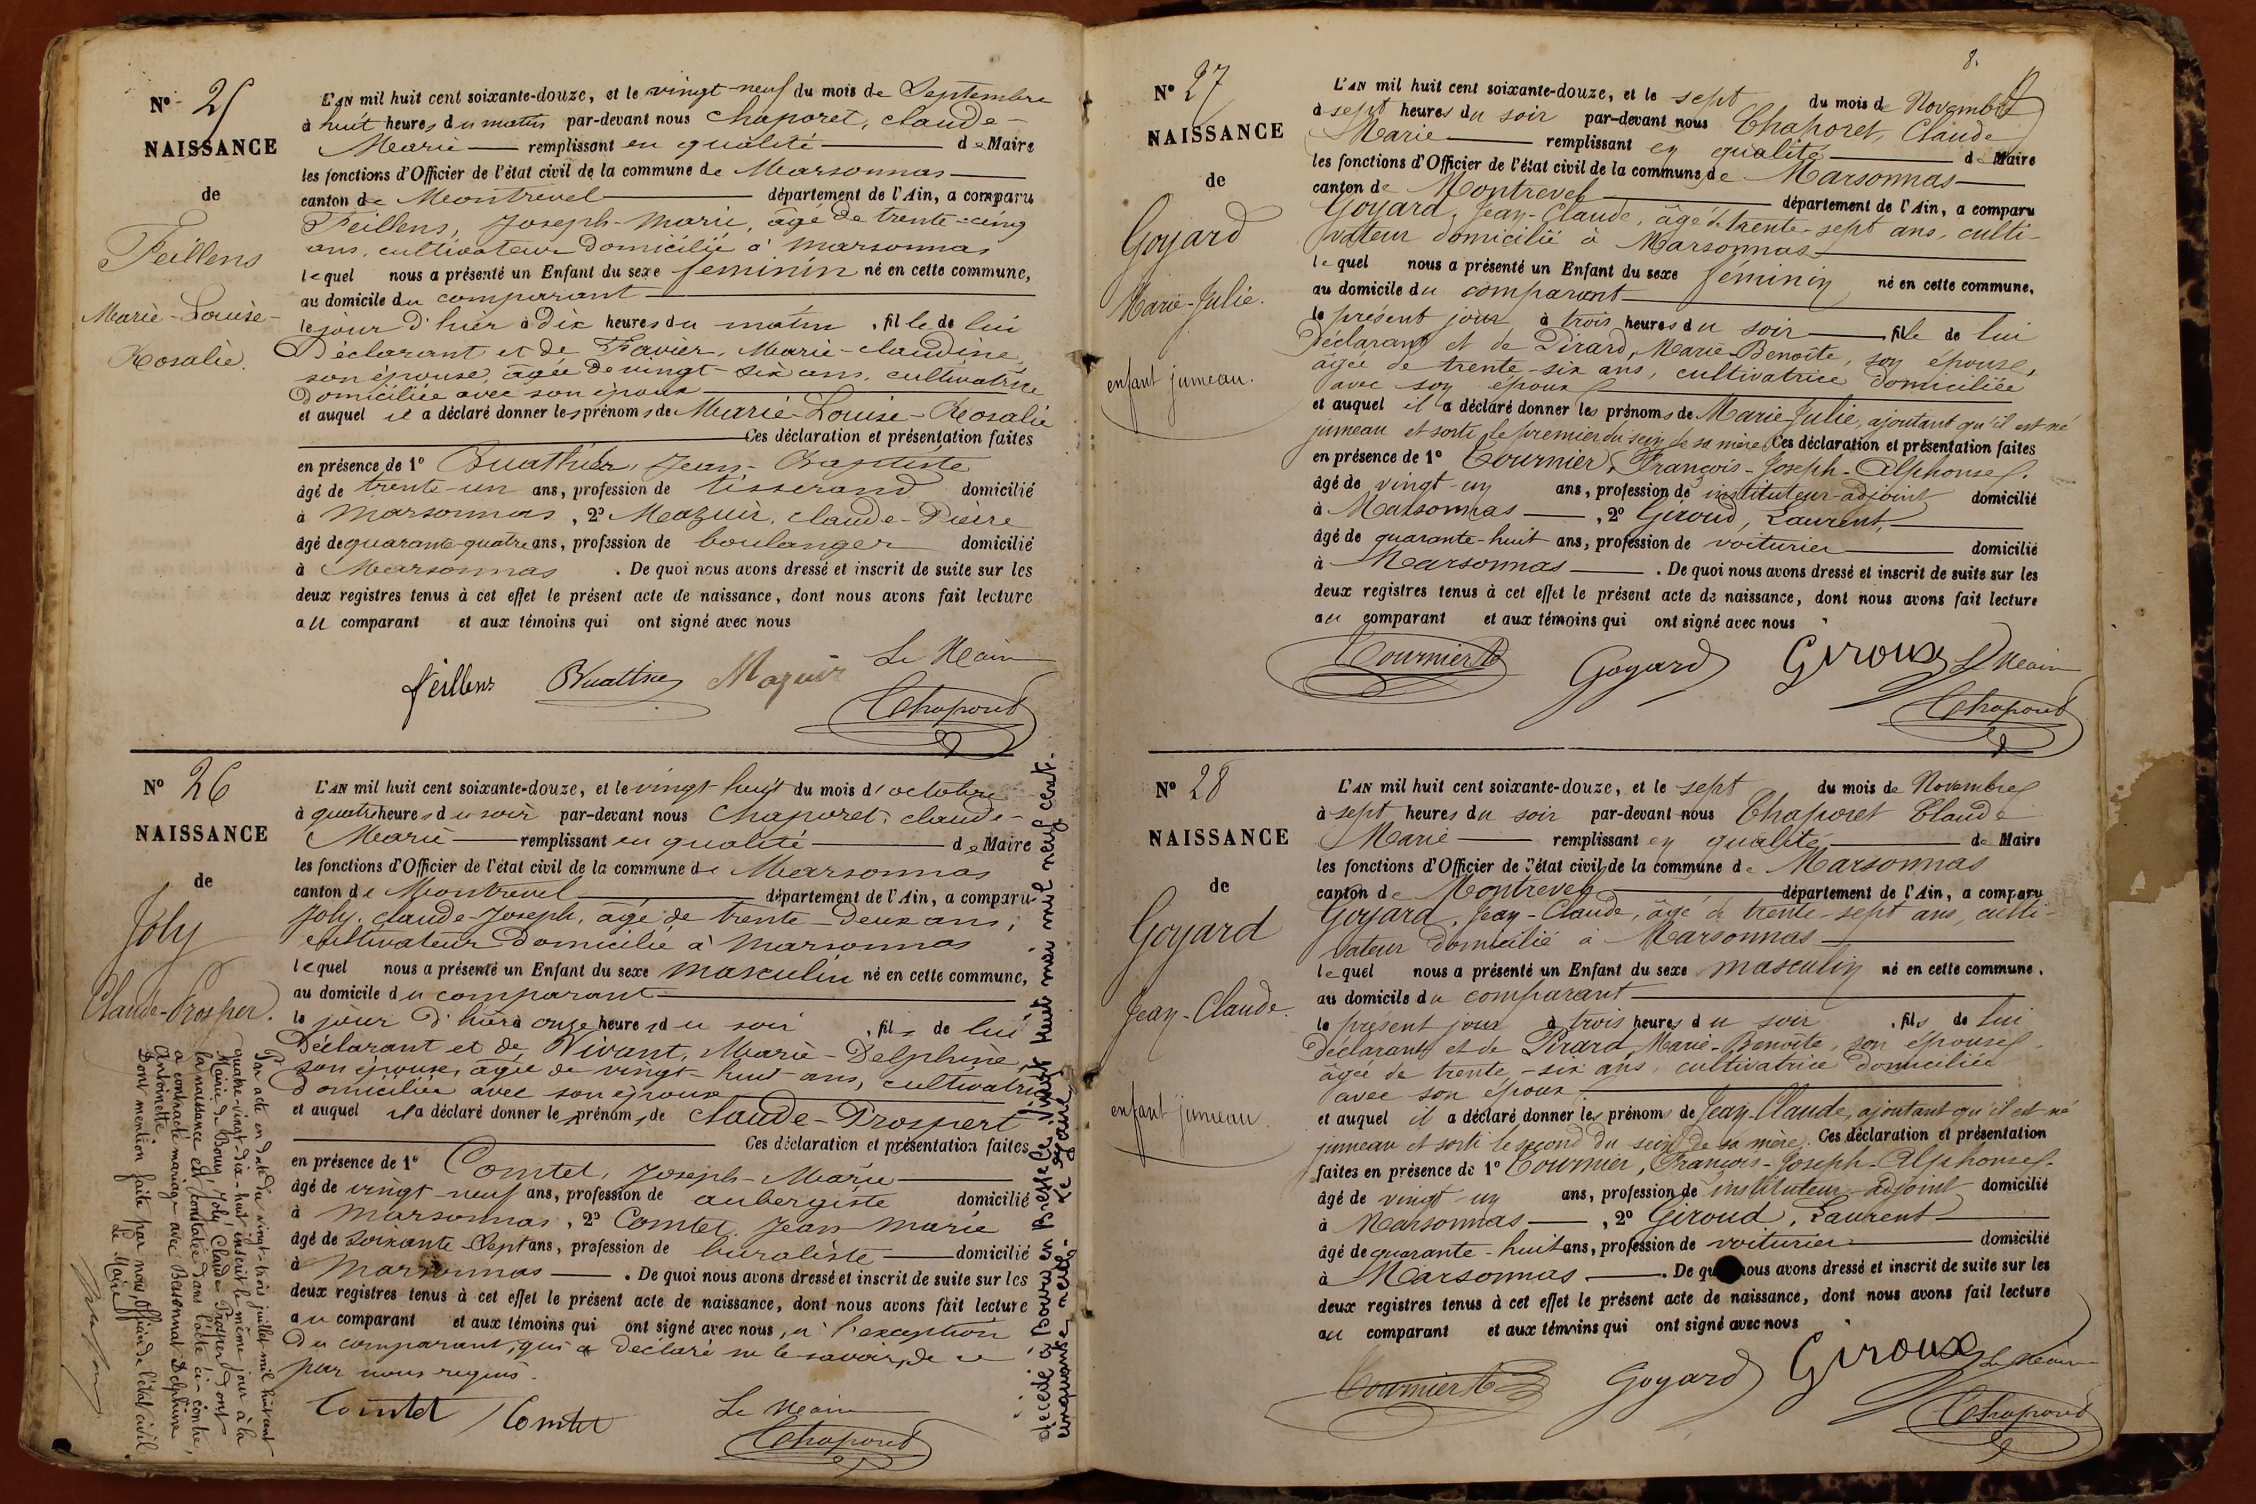 Nº 25
NAISSANCE
de
Feillens
Marie-Louise-
Rosalie.
L'AN mil huit cent soixante-douze, et le vingt-neuf du mois de Septembre
à huit heures du matin par-devant nous Chaporet, claude-
Marie remplissant en qualité de Maire
les fonctions d'Officier de l'état civil de la commune de Marsonnas
canton de Montrevel département de l'Ain, a comparu
Feillens, Joseph-Marie, âgé de trente-cinq
ans, cultivateur domicilié à Marsonnas
lequel nous a présenté un Enfant du sexe féminin né en cette commune,
au domicile du comparant
le jour d'hier à dix heures du matin, fille de lui
Déclarant et de Favier, Marie-claudine,
son épouse, âgée de vingt-six ans, cultivatrice
domiciliée avec son époux
et auquel il a déclaré donner les prénoms de Marie-Louise-Rosalie
Ces déclaration et présentation faites
en présence de 1º Buathier, Jean-Baptiste
âgé de trente-un ans, profession de tisserand domicilié
à Marsonnas, 2º Mazuir, claude-Pierre
âgé de quarante-quatre ans, profession de boulanger domicilié
à Marsonnas. De quoi nous avons dressé et inscrit de suite sur les
deux registres tenus à cet effet le présent acte de naissance, dont nous avons fait lecture
au comparant et aux témoins qui ont signé avec nous
feillens Buathier Mazuir Le Maire
Chaporet
Nº 26
NAISSANCE
de
Joly
Claude-Prosper.
L'AN mil huit cent soixante-douze, et le vingt huit du mois d'octobre
à quatre heures du soir par-devant nous Chaporet, claude-
Marie remplissant en qualité de Maire
les fonctions d'Officier de l'état civil de la commune de Marsonnas
canton de Montrevel département de l'Ain, a comparu
Joly, claude-Joseph, âgé de trente-deux ans,
cultivateur domicilié à Marsonnas
lequel nous a présenté un Enfant du sexe masculin né en cette commune,
au domicile du comparant
le jour d'hier à onze heures du soir, fils de lui
Déclarant et de Vivant, Marie-Delphine,
son épouse, âgée de vingt-huit ans, cultivatrice
domiciliée avec son époux
et auquel il a déclaré donner le prénom de claude-Prospert
Ces déclaration et présentation faites
en présence de 1º Comtet, Joseph-Marie
âgé de vingt-neuf ans, profession de aubergiste domicilié
à Marsonnas, 2º Comtet, Jean Marie
âgé de soixante-Sept ans, profession de buraliste domicilié
à Marsonnas. De quoi nous avons dressé et inscrit de suite sur les
deux registres tenus à cet effet le présent acte de naissance, dont nous avons fait lecture
au comparant et aux témoins qui ont signé avec nous, à l'exception
du comparant, qui a déclaré ne le savoir, de ce
par nous requis.
Comtet Comtet Le Maire
Chaporet
Par acte en date du vingt-trois juillet mil huit cent
quatre-vingt-dix-huit inscrit le même jour à la
Mairie de Bourg, Joly, Claude Prosper dont
la naissance est constatée dans l'acte ci-contre,
a contracté mariage avec Basonnat Delphine
Antoinette.
Dont mention faite par nous, officier de l'état civil.
Le Maire
décédé à Bourg en Bresse le vingt huit mai mil neuf cent-
cinquante neuf.
8.
Nº 27
NAISSANCE
de
Goyard
Marie-Julie.
enfant jumeau.
L'AN mil huit cent soixante-douze, et le sept du mois de Novembre
à sept heures du soir par-devant nous Chaporet, Claude
Marie remplissant en qualité de Maire
les fonctions d'Officier de l'état civil de la commune de Marsonnas
canton de Montrevel département de l'Ain, a comparu
Goyard, Jean-Claude, âgé de trente-sept ans, culti-
vateur domicilié à Marsonnas
lequel nous a présenté un Enfant du sexe féminin né en cette commune,
au domicile du comparant
le présent jour à trois heures du soir fille de lui
déclarant et de Pirard, Marie-Benoîte, son épouse,
âgée de trente-six ans, cultivatrice domiciliée
avec son époux
et auquel il a déclaré donner les prénoms de Marie Julie, ajoutant qu'il est né
jumeau et sorti le premier du sein de sa mère. Ces déclaration et présentation faites
en présence de 1º Tournier, François-Joseph-Alphonse,
âgé de vingt-un ans, profession de instituteur-adjoint domicilié
à Marsonnas, 2º Giroud, Laurent,
âgé de quarante-huit ans, profession de voiturier domicilié
à Marsonnas. De quoi nous avons dressé et inscrit de suite sur les
deux registres tenus à cet effet le présent acte de naissance, dont nous avons fait lecture
au comparant et aux témoins qui ont signé avec nous
Tournier A Goyard Giroux Le Maire
Chaporet
Nº 28
NAISSANCE
de
Goyard
Jean-Claude.
enfant jumeau.
L'AN mil huit cent soixante-douze, et le sept du mois de Novembre
à sept heures du soir par-devant nous Chaporet Claude
Marie remplissant en qualité de Maire
les fonctions d'Officier de l'état civil de la commune de Marsonnas
canton de Montrevel département de l'Ain, a comparu
Goyard, Jean-Claude, âgé de trente-sept ans, culti-
vateur domicilié à Marsonnas
lequel nous a présenté un Enfant du sexe masculin né en cette commune,
au domicile du comparant
le présent jour à trois heures du soir, fils de lui
déclarant et de Pirard, Marie-Benoîte, son épouse,
âgée de trente-six ans, cultivatrice domiciliée
avec son époux
et auquel il a déclaré donner les prénoms de Jean-Claude, ajoutant qu'il est né
jumeau et sorti le second du sein de sa mère. Ces déclaration et présentation
faites en présence de 1º Tournier, François-Joseph-Alphonse,
âgé de vingt-un ans, profession de instituteur-adjoint domicilié
à Marsonnas, 2º Giroud, Laurent
âgé de quarante-huit ans, profession de voiturier domicilié
à Marsonnas. De qu nous avons dressé et inscrit de suite sur les
deux registres tenus à cet effet le présent acte de naissance, dont nous avons fait lecture
au comparant et aux témoins qui ont signé avec nous
Tournier A Goyard Giroux Le Maire
Chaporet